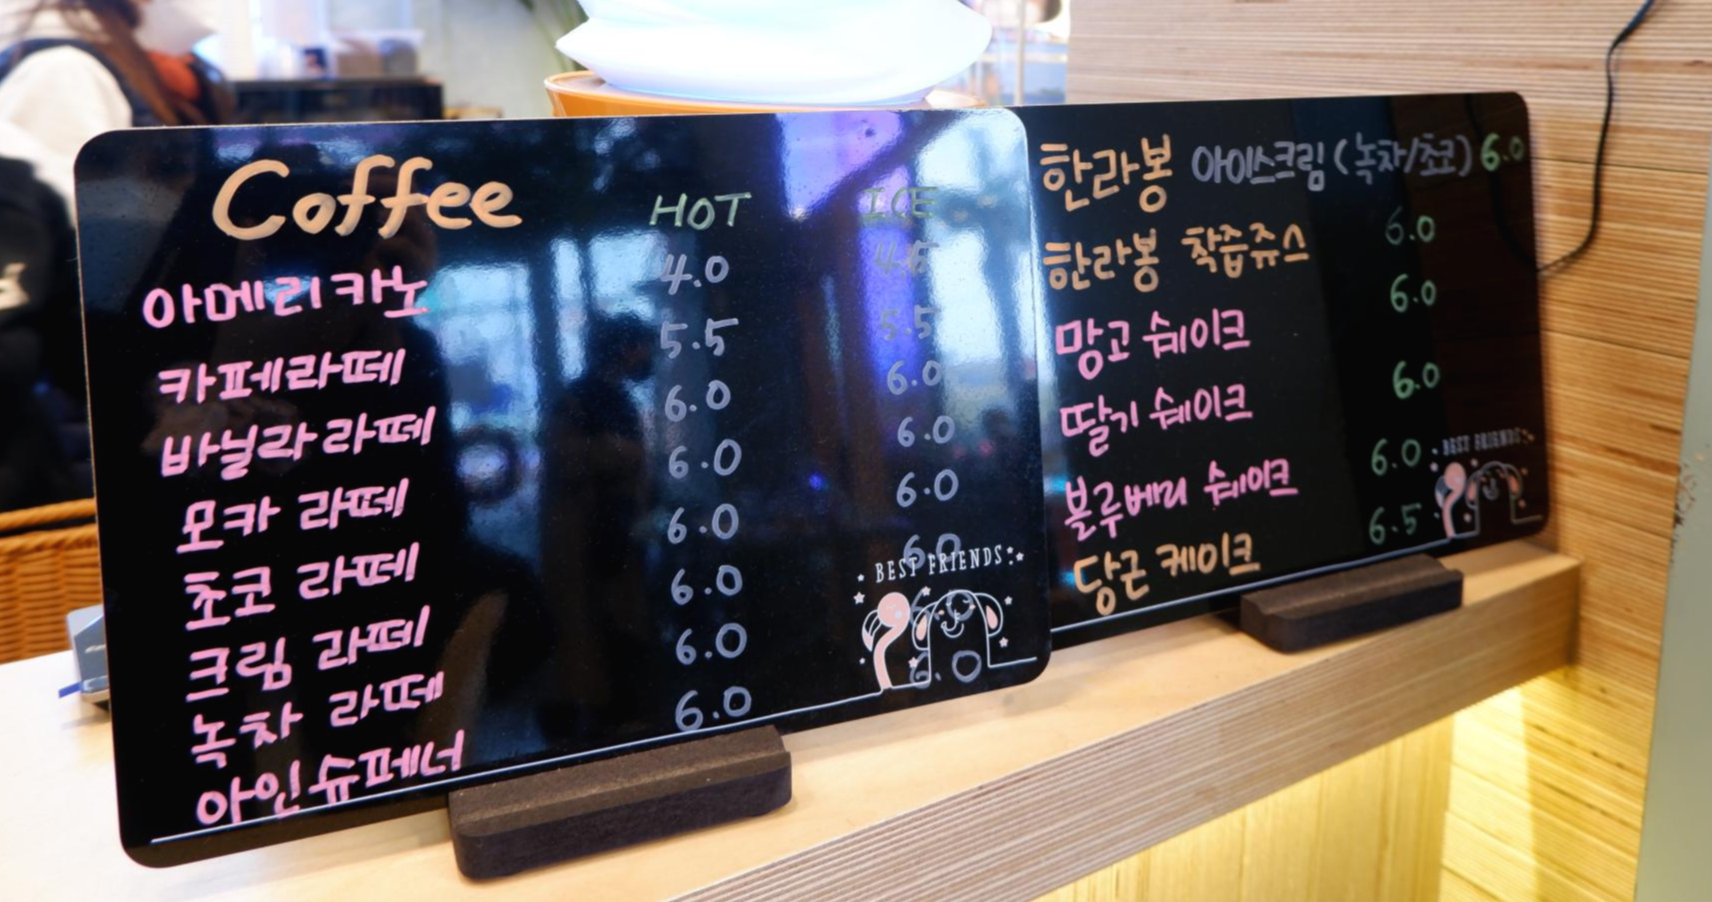 Coffee HOT ICE
아메리카노 4.0 4.5
카페라떼 5.5 5.5
바닐라라떼 6.0 6.0
모카 라떼 6.0 6.0
초코 라떼 6.0 6.0
크림 라떼 6.0 6.0
녹차 라떼 6.0
아인슈페너 6.0 6.0
BEST FRIENDS
한라봉 아이스크림 (녹차/초코) 6.0
한라봉 착즙쥬스 6.0
망고 쉐이크 6.0
딸기 쉐이크 6.0
블루베리 쉐이크 6.0
당근 케이크 6.5
BEST FRIENDS